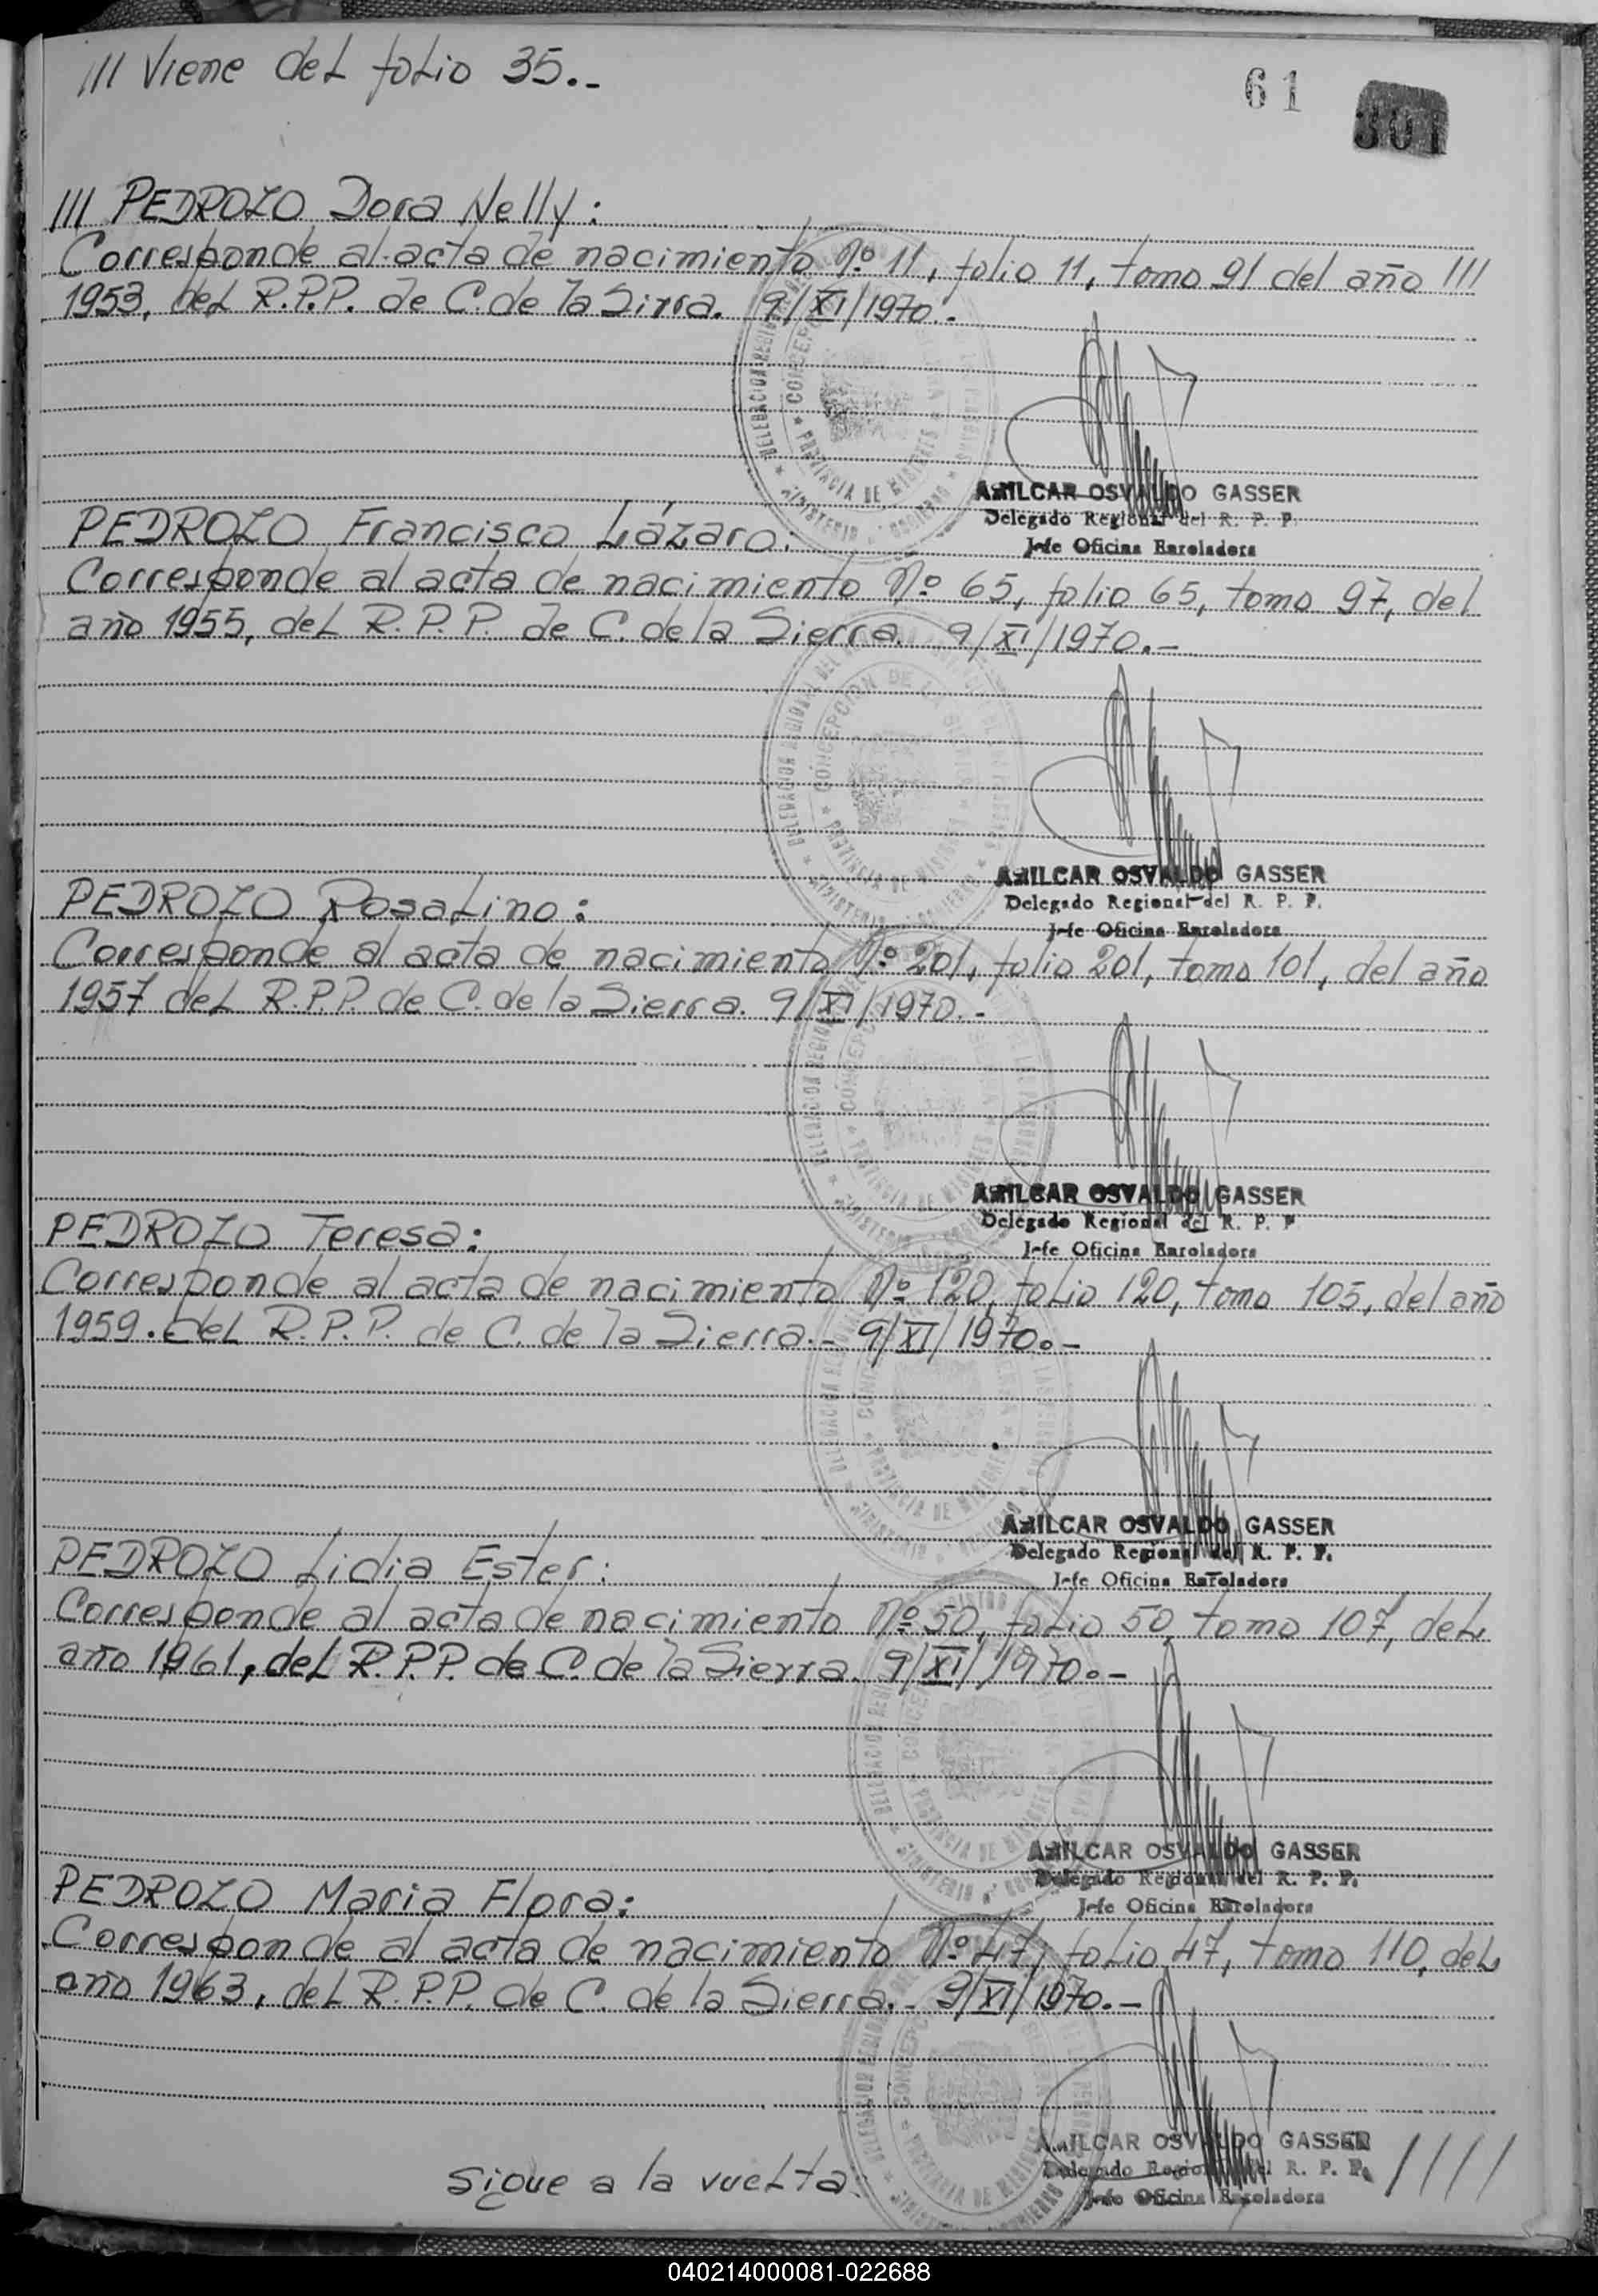 /// Viene del folio 35.-
61
301
/// PEDROZO Dora Nelly:
Corresponde al acta de nacimiento Nº 11, folio 11, tomo 91 del año ///
1953, del R.P.P. de C. de la Sirra. 9/XI/1970.-
AMILCAR OSVALDO GASSER
Delegado Regional del R. P. P.
Jefe Oficina Enroladora
PEDROZO Francisco Lázaro:
Corresponde al acta de nacimiento Nº 65, folio 65, tomo 97, del
año 1955, del R.P.P. de C. de la Sierra. 9/XI/1970.-
AMILCAR OSVALDO GASSER
Delegado Regional del R. P. P.
Jefe Oficina Enroladora
PEDROZO Rosalino:
Corresponde al acta de nacimiento Nº 201, folio 201, tomo 101, del año
1957 del R.P.P. de C. de la Sierra. 9/XI/1970.-
AMILCAR OSVALDO GASSER
Delegado Regional del R. P. P.
Jefe Oficina Enroladora
PEDROZO Teresa:
Corresponde al acta de nacimiento Nº 120, folio 120, tomo 105, del año
1959. del R.P.P. de C. de la Sierra.- 9/XI/1970.-
AMILCAR OSVALDO GASSER
Delegado Regional del R. P. P.
Jefe Oficina Enroladora
PEDROZO Lidia Ester:
Corresponde al acta de nacimiento Nº 50, folio 50, tomo 107, del
año 1961, del R.P.P. de C. de la Sierra. 9/XI/1970.-
AMILCAR OSVALDO GASSER
Delegado Regional del R. P. P.
Jefe Oficina Enroladora
PEDROZO Maria Flora:
Corresponde al acta de nacimiento Nº 47, folio 47, tomo 110, del
año 1963, del R.P.P. de C. de la Sierra.- 9/XI/1970.-
AMILCAR OSVALDO GASSER
Delegado Regional del R. P. P.
Jefe Oficina Enroladora
Sigue a la vuelta: ////
040214000081-022688